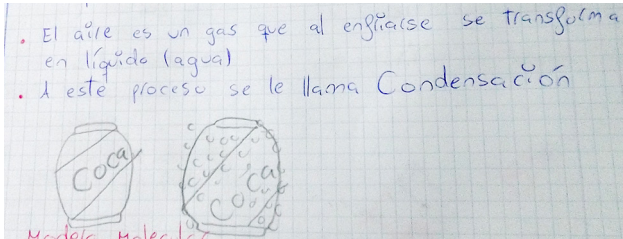 • El aire es un gas que al enfriarse se transforma
en líquido (agua)
• A este proceso se le llama Condensación
COCA
COCA
Modelo Molecular